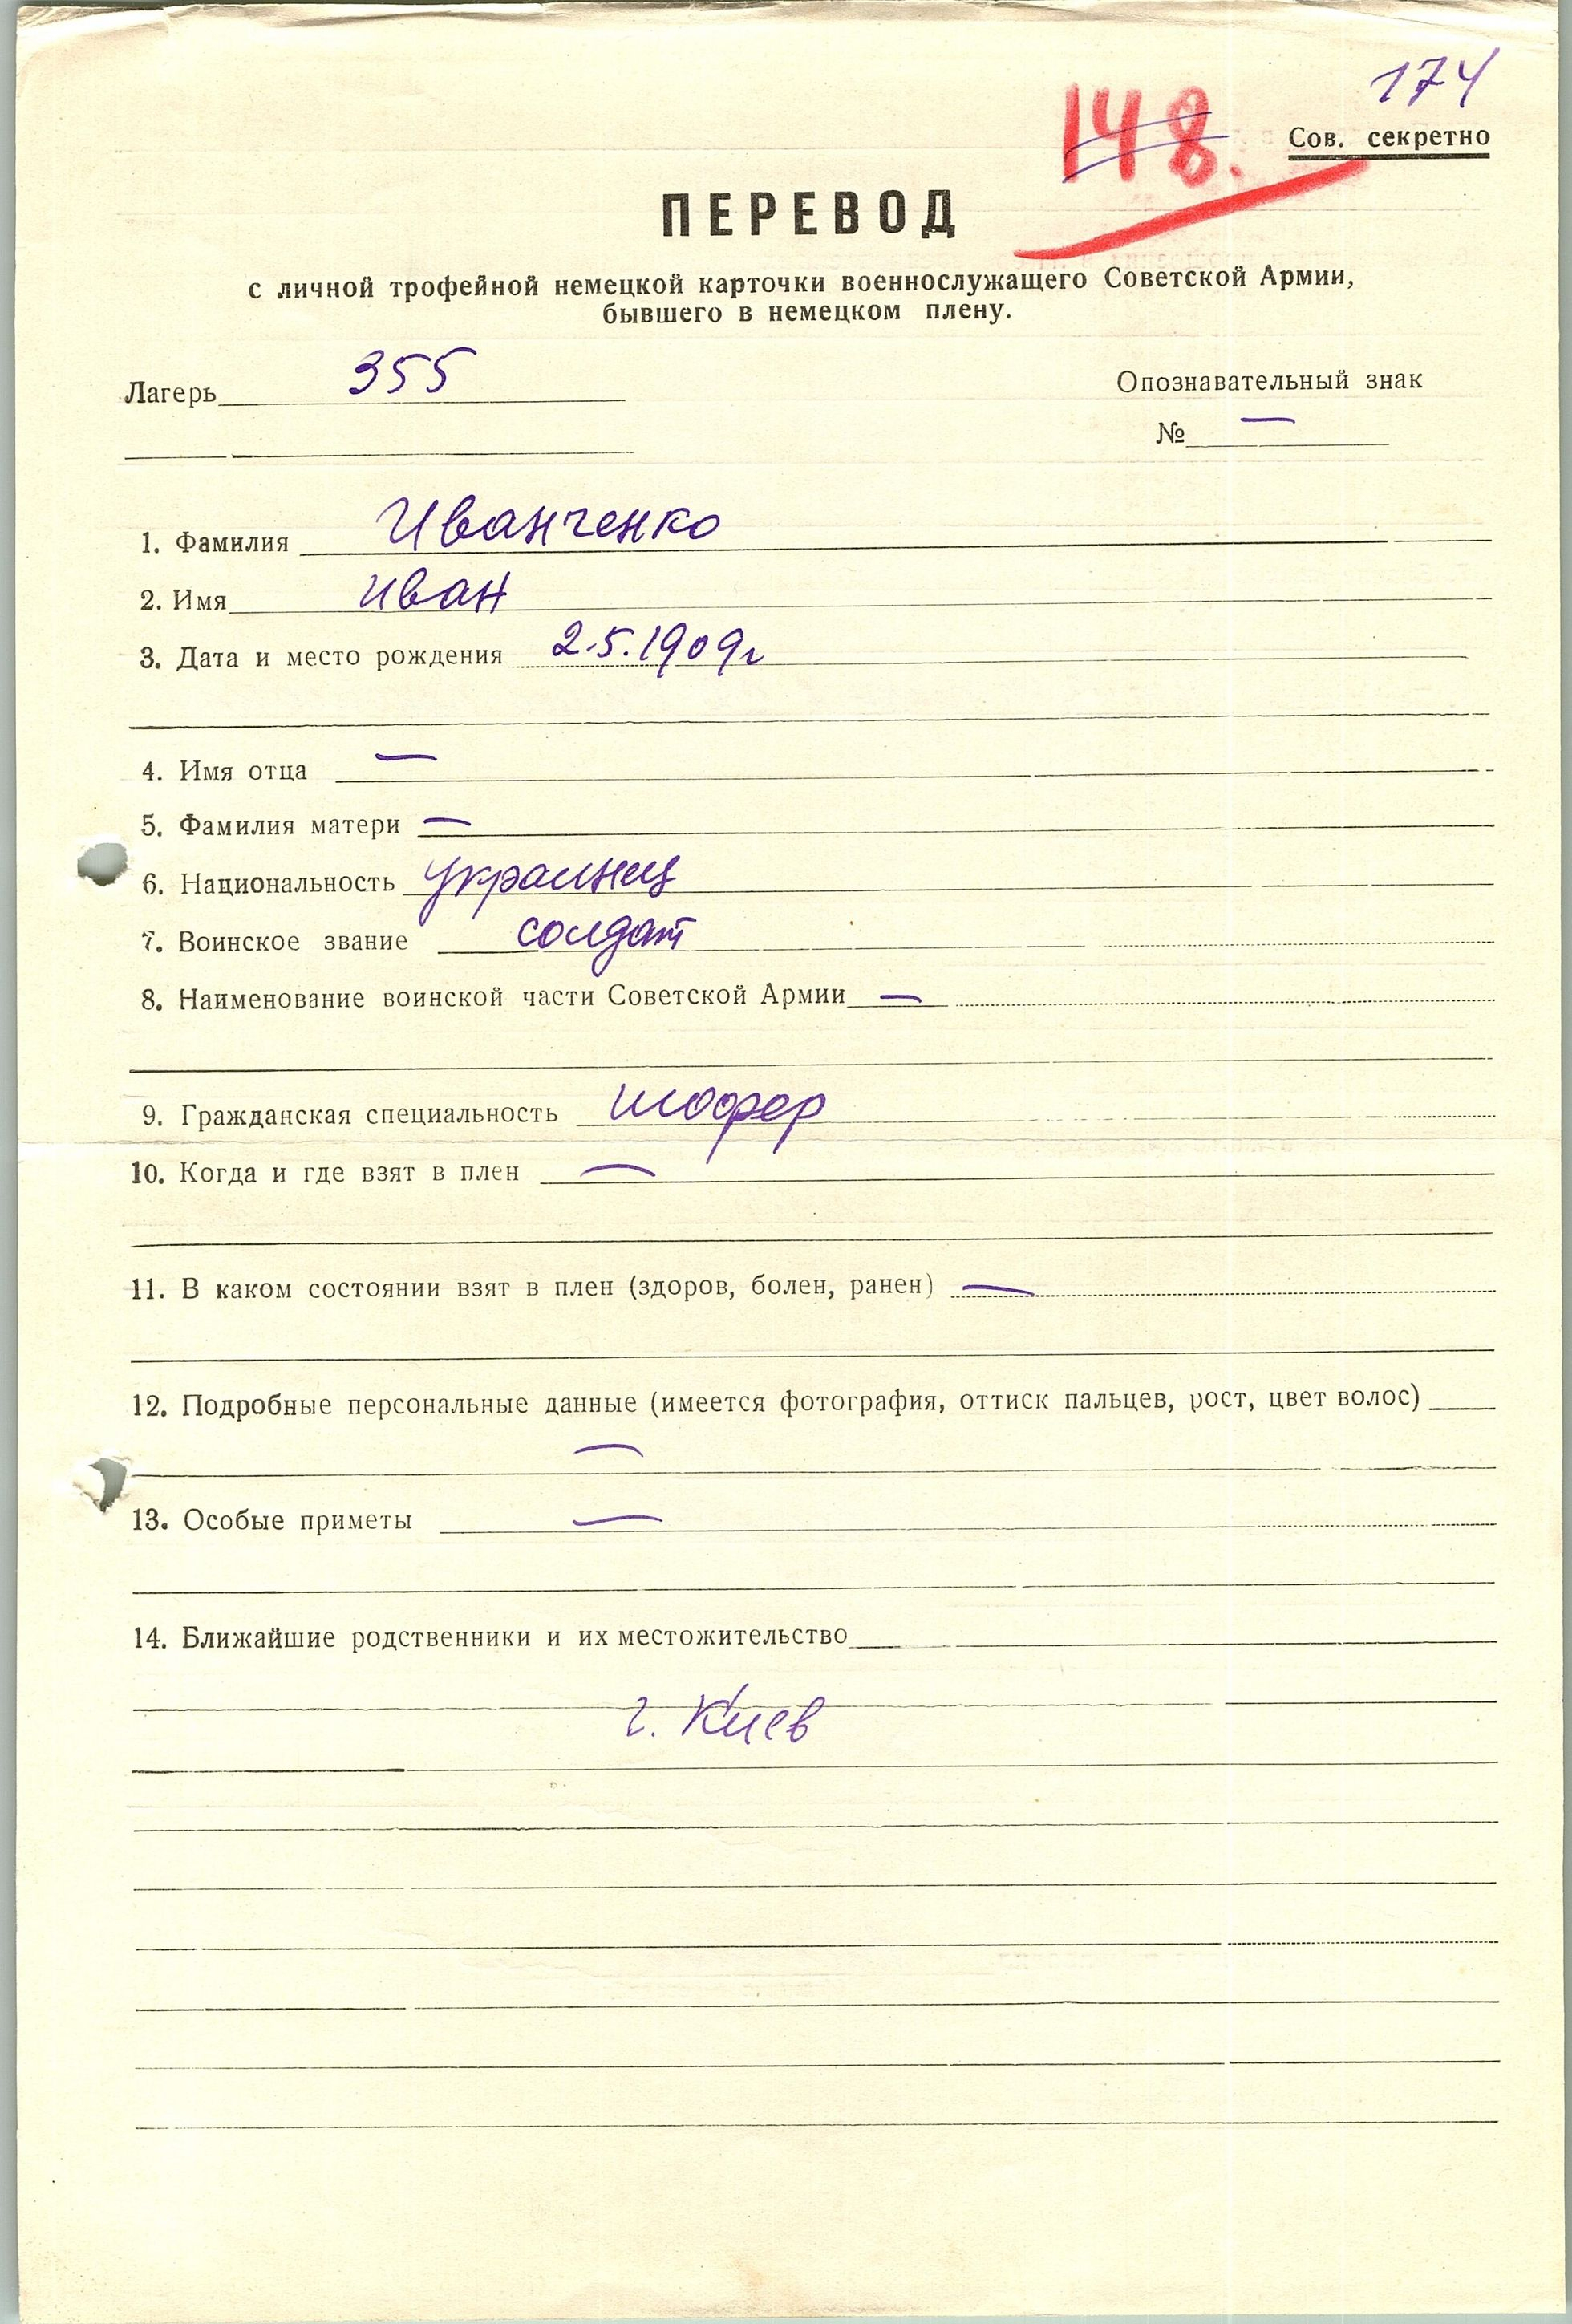 174
148.
Сов. секретно
ПЕРЕВОД
с личной трофейной немецкой карточки военнослужащего Советской Армии,
бывшего в немецком плену.
Лагерь 355
Опознавательный знак
№ —
1. Фамилия Иванченко
2. Имя Иван
3. Дата и место рождения 2.5.1909г
4. Имя отца —
5. Фамилия матери —
6. Национальность украинец
7. Воинское звание солдат
8. Наименование воинской части Советской Армии —
9. Гражданская специальность шофер
10. Когда и где взят в плен —
11. В каком состоянии взят в плен (здоров, болен, ранен) —
12. Подробные персональные данные (имеется фотография, оттиск пальцев, рост, цвет волос)
—
13. Особые приметы —
14. Ближайшие родственники и их местожительство
г. Киев